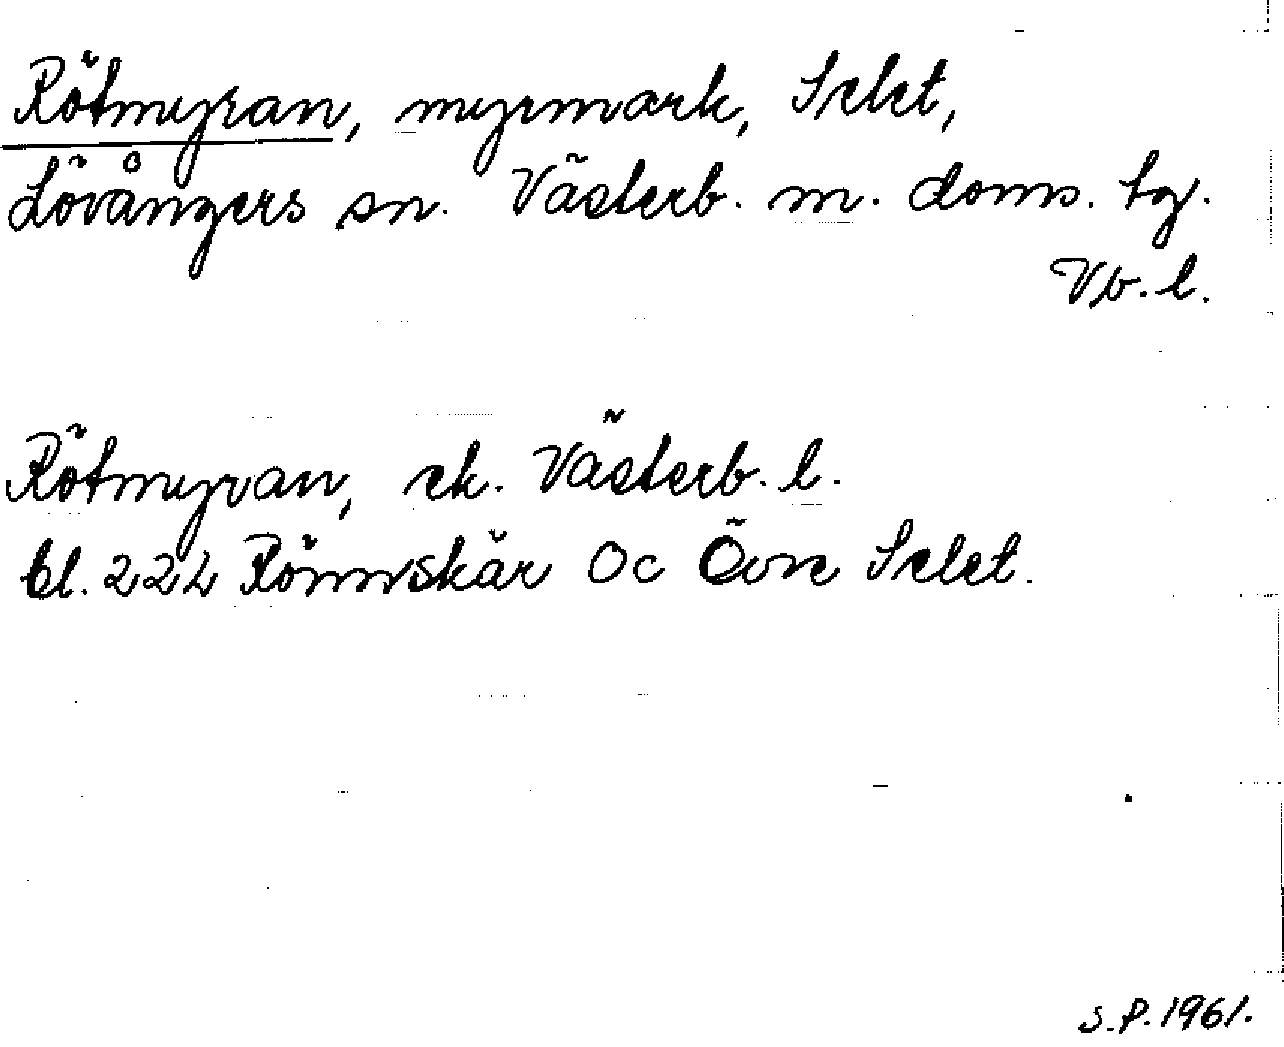 Rötmyran, myrmark, Selet,
Lövångers sn. Västerb. m. doms. tg.
Vb. l.
Rötmyran, ek. Västerb. l.
bl. 222 Rönnskär Oc Övre Selet.
S.P. 1961.